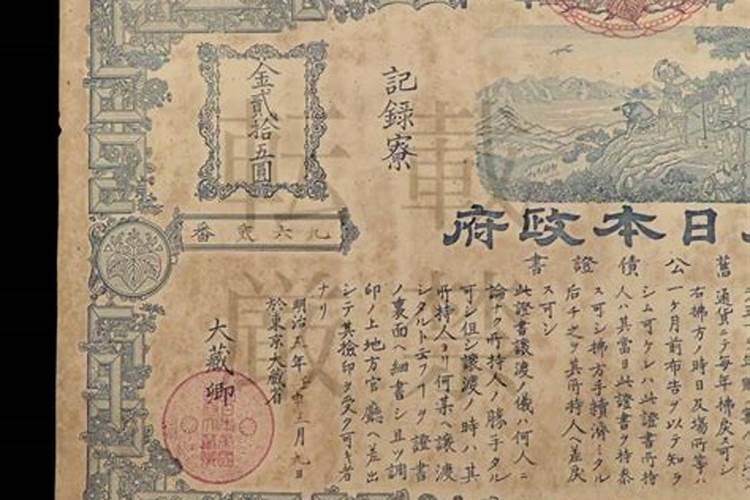 日本政府
舊公債證書
通貨ニテ每年拂戾ス可シ
右拂方ノ時日及場所等ハ
一ケ月前布告ヲ以テ知ラ
シム可ケレハ此證書所持
人ハ其當日此證書ヲ持參
ス可シ拂方手續濟ミタル
后チ之ヲ其所持人ヘ差戾
ス可シ
此證書讓渡ノ儀ハ何人ニ
論ナク所持人ノ勝手タル
可シ但シ讓渡ノ時ハ其
所持人ヨリ何某ヘ讓渡
シタルト云フヿヲ證書
ノ裏面ヘ細書シ且ツ調
印ノ上地方官廳ヘ差出
シテ其檢印ヲ受ク可キ者
ナリ
記録寮
金貳拾五圓
九六貳番
明治五年壬申三月九日
於東京大藏省
大藏卿
転載
厳禁